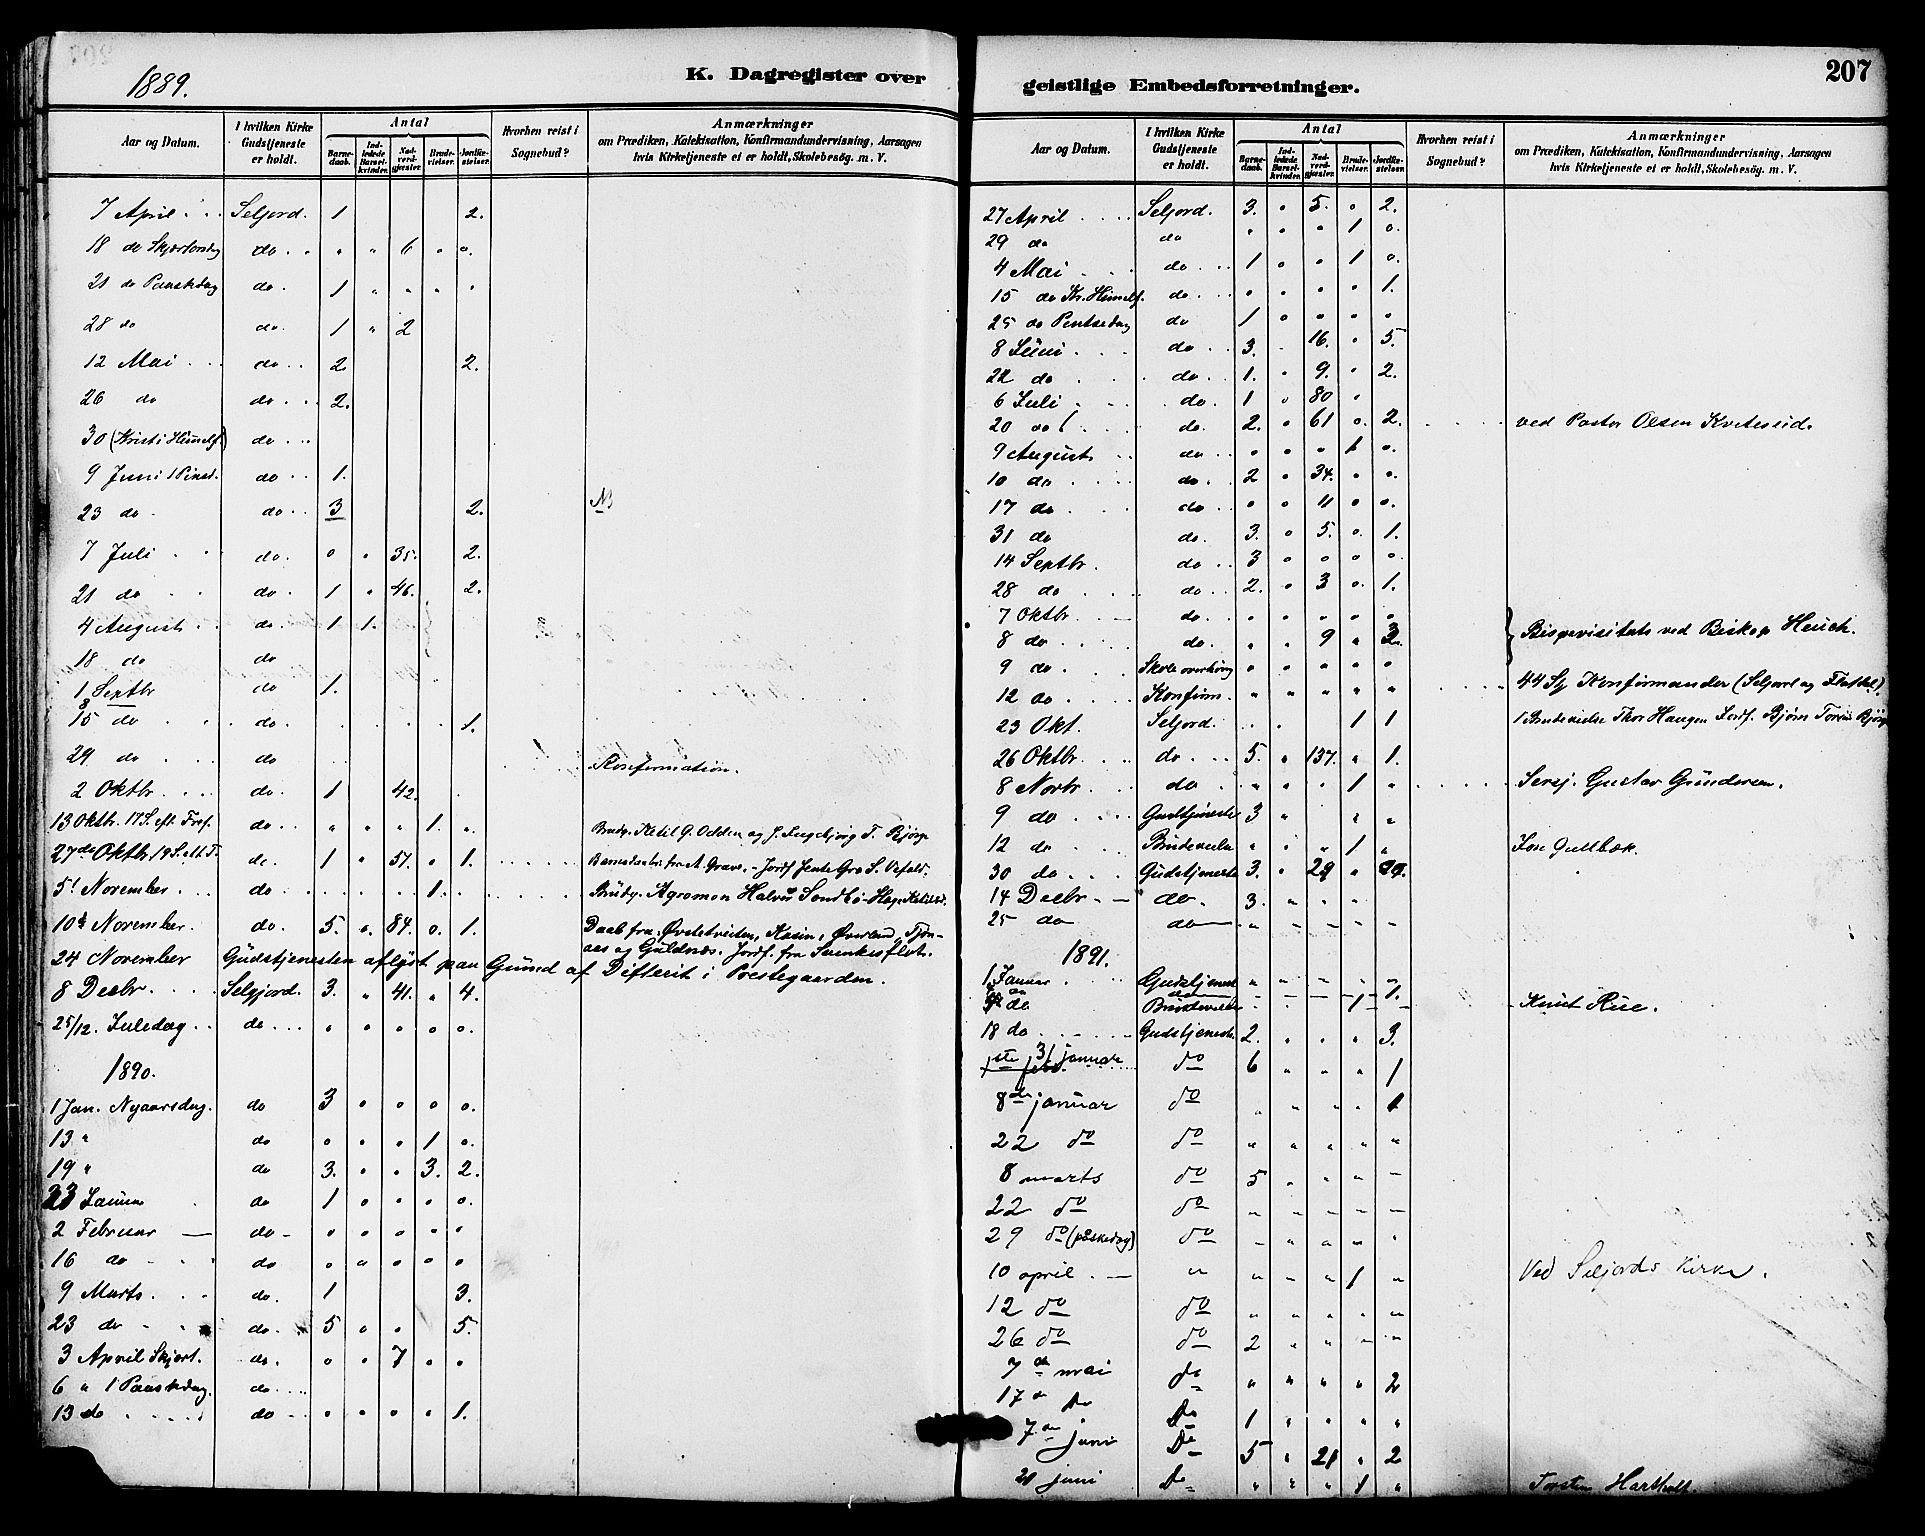 1889.
K. Dagregister over
Aar og Datum.
I hvilken Kirke Gudstjeneste er holdt.
Antal
Barnedaab.
Indledede Barselkvinder.
Nadverdgjæster.
Brudevielser.
Jordfæstelser.
Hvorhen reist i Sognebud?
Anmærkninger
om Prædiken, Katekisation, Konfirmandundervisning, Aarsagen
hvis Kirketjeneste ei er holdt, Skolebesög. m. V.
7 April Seljord. 1 2.
18 do Skjærtorsdag do " " 6 " o.
21 do Paaskdag do. 1 " " " "
28 do do. 1 " 2
12 Mai do 2 2.
26 do do 2.
30 (Kristi Himmelf.) do
9 Juni 1 Pinsd. do 1.
23 do do 3 2. NB
7 Juli do. o " 35. 2.
21 do do. 1 " 46. 2.
4 August do. 1 1.
18 do do
1 Septbr do 1.
8
15 do do. 1.
29 do do Konfirmation.
2 Oktbr. do. 1 42.
13 Oktbr. 17 S. eft. Tref. do " " " 1. " Brudp. Ketil G. Odden og J. Ingebjørg T. Bjørge
27de Oktbr 19 S. eft. T. do. 1 " 57. o 1. Barnedaab fra A. Grave. - Jordf Jente Gro S. Vefald.
5! November do 1. Brudp. Agronom Halvor Sondbø
10de November. do. 5. o. 84. o. 1. Daab fra Øvstetveiten, Kasin, Øverland, Tjøn-
aas og Guldnæs. Jordf. fra
24 November Gudstjenesten aflyst paa Grund af Difterit i Prestegaarden.
8 Decbr. Selgjord. 3. " 41. " 4.
25/12. Juledag do o o o o o.
1890.
1 Jan. Nyaarsdag. do 3 o o o o.
13 " do o o o 1 o.
19 " do 3. o o 3. 2.
23 Januar do 1 o o o o.
2 Februar do o o o o o
16 do do o o o o o
9 Marts do. 1 3.
23 do do. 5 o o 5.
3 April Skjært. do. o o 7 o o
6 " 1 Paaskdag. do
13 do do o o o o 1.
geistlige Embedsforretninger.
207
Aar og Datum.
I hvilken Kirke Gudstjeneste er holdt.
Antal
Barnedaab.
Indledede Barselkvinder.
Nadverdgjæster.
Brudevielser.
Jordfæstelser.
Hvorhen reist i Sognebud?
Anmærkninger
om Prædiken, Katekisation, Konfirmandundervisning, Aarsagen
hvis Kirketjeneste ei er holdt, Skolebesög. m. V.
27 April Seljord. 3. o 5. o 2.
29 do do o o o 1 o.
4 Mai do 1 o o 1 o.
15 do Kr. Himelf. do o o o o 1.
25 do Pintsedag do 1 o o o o
8 Juni do 3. 16. o 5.
22 do do 1. o 9. o 2.
6 Juli do. 1 o 80 o
20 do do. 2. o 61 o. 2. ved Pastor Olsen Kviteseid.
9 August do o o o 1 o.
10 do do. 2 o 34. o o.
17 do do o o 11 o o.
31 do do. 3. o 5. o. 1.
14 Septbr. do 3 o o o o.
28 do do 2. o 3 o. 1.
7 Oktbr do. o o o o o
8 do do. " " 9 " 3. Bispevisitats ved Biskop Heuch.
9 do. Skoleoverhøring o o o o o
12 do. Konfirm. " " " " " 44 Stk Konfirmander (Seljord og Flatdal)
23 Okt. Seljord. 1 1 1 Brudevielse Thor Haugen Jordf. Bjørn
26 Oktbr. do. 5. " 137. " 1.
8 Novbr do " " " 1 " Sersj. Gustav Gundersen.
9 do Gudstjeneste 3 " " "
12 do Brudevielse " " " 1 " Jon Gullbæk.
30 do. Gudstjeneste 3. " 29 "
14 Decbr do. 3. " " "
25 do do " - - - -
1891.
1 Januar Gudstjenest " - - - -
do 1.
do Brudevielse 1 - Knut Rue.
18 do Gudstjeneste 2. " " " 3.
1ste febr. 31 januar do 6 " " " 1
8de januar do " " " " 1
22 do do " " " " "
8 marts do 5 " " " -
22 do do - - - - -
29 do (påskedag) do - " " - '
10 april. " " " " 1 " Ved Seljords Kirke.
12 do do " " " " "
26 do do 2 " " - "
7de mai do " " " " 2
17de Do
Do 1 " " " "
7de juni Do 5 " 21 " 2
21 juni Do " " " 1 "